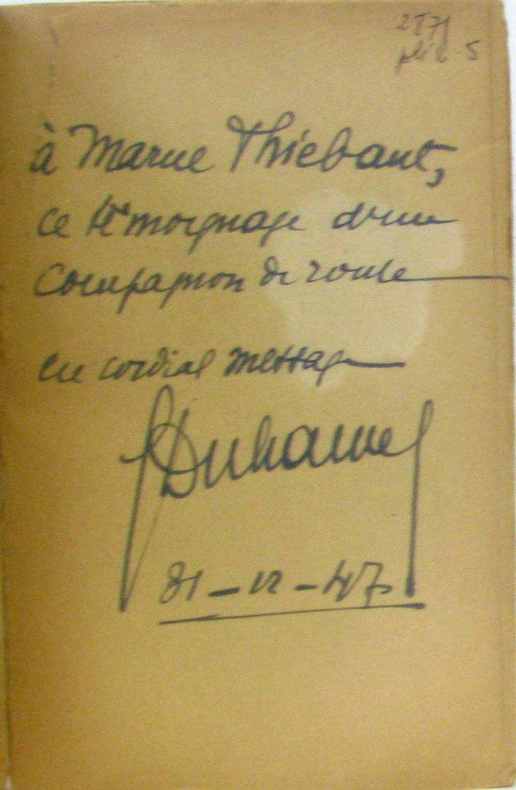 à Marcel Thiébaut,
ce témoignage d'un
compagnon de route
en cordial message
GDuhamel
31-12-47